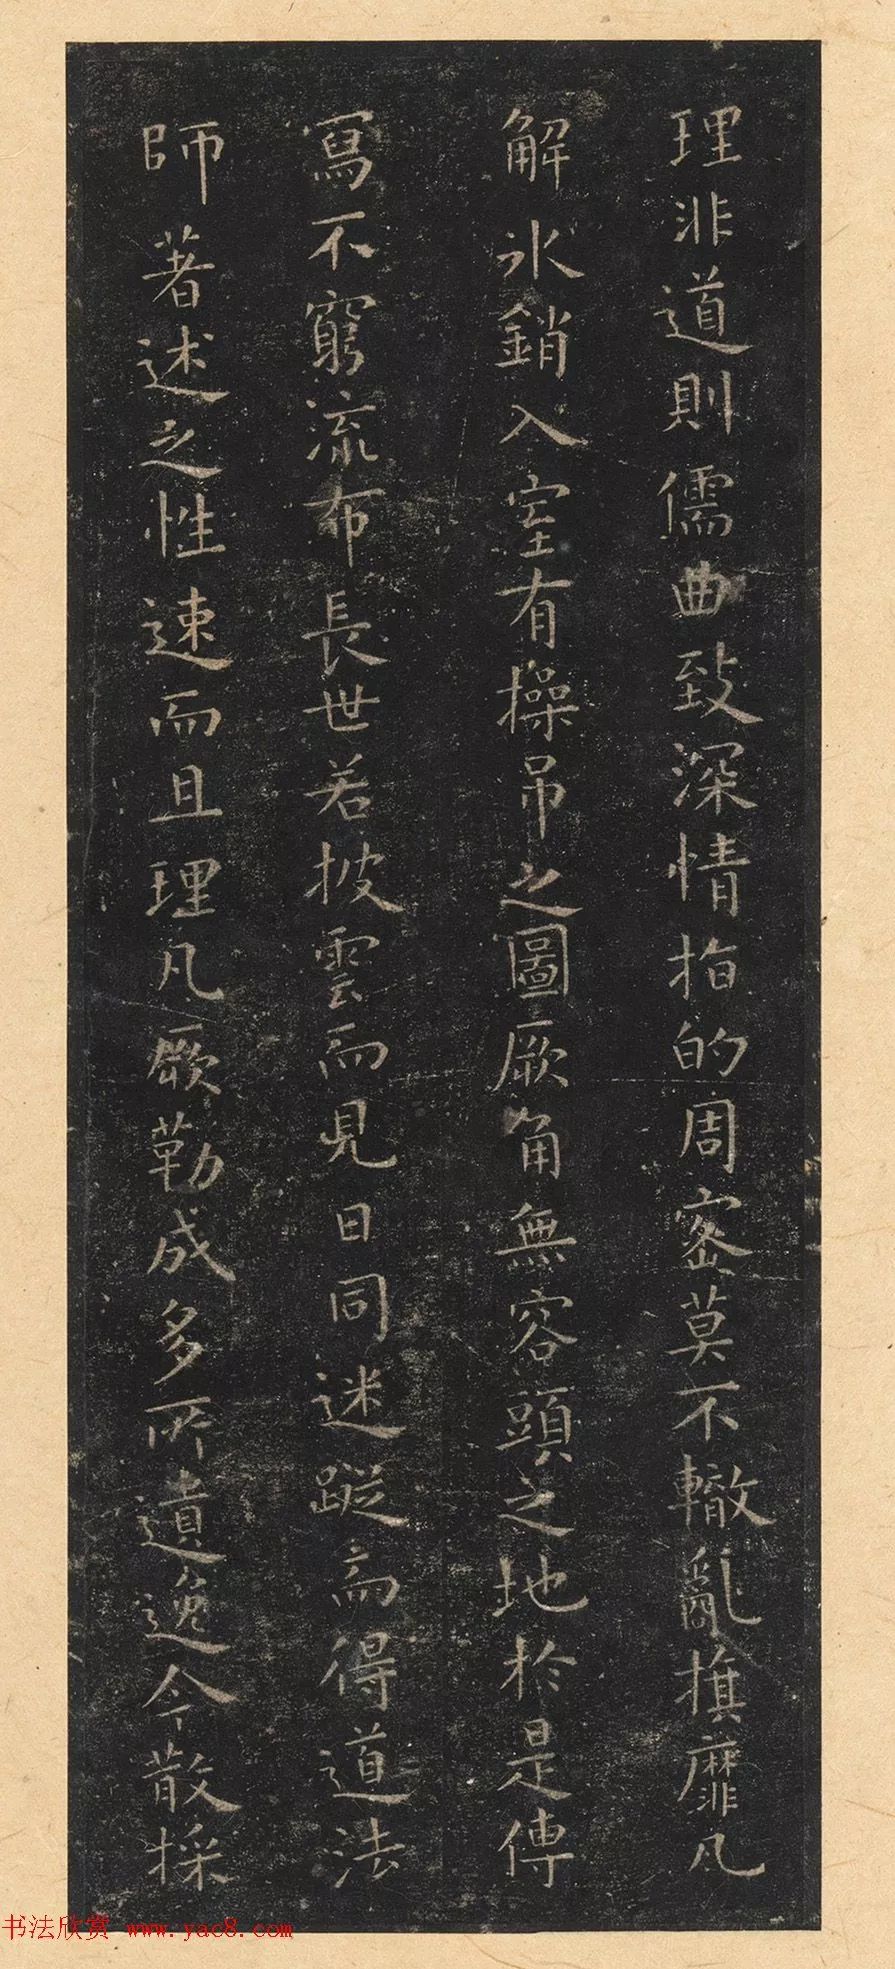 理非道則儒曲致深情指的周密莫不轍亂旗靡凡
解氷銷入室有操吊之圖厥角無容頭之地於是傳
寫不窮流布長世若披雲而見日同迷蹤而得道法
師著述之性速而且理凡厥勒成多所遺逸今散採
书法欣赏 www.yac8.com